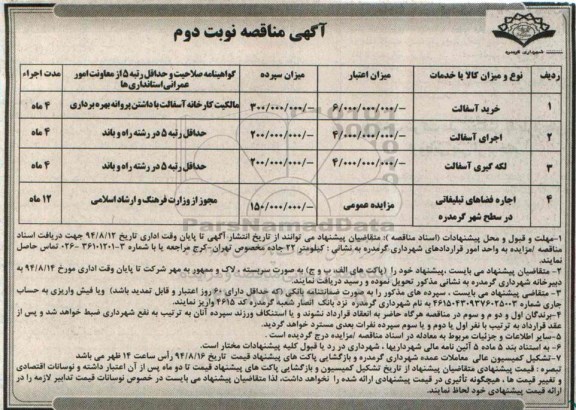 آگهی مناقصه نوبت دوم
شهرداری گرمدره
ردیف نوع و میزان کالا یا خدمات میزان اعتبار میزان سپرده گواهینامه صلاحیت و حداقل رتبه ۵ از معاونت امور عمرانی استانداری‌ها مدت اجراء
۱ خرید آسفالت ۶/۰۰۰/۰۰۰/۰۰۰/– ۳۰۰/۰۰۰/۰۰۰/– مالکیت کارخانه آسفالت با داشتن پروانه بهره برداری ۴ ماه
۲ اجرای آسفالت ۴/۰۰۰/۰۰۰/۰۰۰/– ۲۰۰/۰۰۰/۰۰۰/– حداقل رتبه ۵ در رشته راه و باند ۴ ماه
۳ لکه گیری آسفالت ۴/۰۰۰/۰۰۰/۰۰۰/– ۲۰۰/۰۰۰/۰۰۰/– حداقل رتبه ۵ در رشته راه و باند ۴ ماه
۴ اجاره فضاهای تبلیغاتی در سطح شهر گرمدره مزایده عمومی ۱۵۰/۰۰۰/۰۰۰/– مجوز از وزارت فرهنگ و ارشاد اسلامی ۱۲ ماه
ParsNamadData
۱-مهلت و قبول و محل پیشنهادات (اسناد مناقصه): متقاضیان پیشنهاد می توانند از تاریخ انتشار آگهی تا پایان وقت اداری تاریخ ۹۴/۸/۱۲ جهت دریافت اسناد
مناقصه /مزایده به واحد امور قراردادهای شهرداری گرمدره به نشانی : کیلومتر ۲۲ جاده مخصوص تهران-کرج مراجعه یا با شماره ۳-۳۶۱۰۱۲۰۱-۰۲۶ تماس حاصل
نمایند.
۲- متقاضیان پیشنهاد می بایست ،پیشنهاد خود را (پاکت های الف، ب و ج) به صورت سربسته ، لاک و ممهور به مهر شرکت تا پایان وقت اداری مورخ ۹۴/۸/۱۴ به
دبیرخانه شهرداری گرمدره به نشانی مذکور تحویل نموده و رسید دریافت نمایند.
۳- متقاضی پیشنهاد می بایست ، سپرده های مذکور را به صورت ضمانتنامه بانکی (که حداقل دارای ۶۰ روز اعتبار و قابل تمدید باشد) ویا فیش واریزی به حساب
جاری شماره ۳-۹۳۷۶۲۵۰-۴۳-۴۶۱۵ به نام شهرداری گرمدره نزد بانک انصار شعبه گرمدره کد ۴۶۱۵ واریز نمایند.
۴-برندگان اول و دوم و سوم در مناقصه هرگاه حاضر به انعقاد قرارداد نشوند و یا استنکاف ورزند سپرده آنان به ترتیب به نفع شهرداری ضبط خواهد شد و پس از
عقد قرارداد به ترتیب با نفر اول یا دوم و یا سوم سپرده نفرات بعدی مسترد خواهد گردید.
۵-سایر اطلاعات و جزئیات مربوط به معادله در اسناد مناقصه /مزایده درج گردیده است .
۶- به استناد بند ۵ ماده ۵ آئین نامه مالی شهرداریها ، شهرداری در رد یا قبول کلیه پیشنهادات مختار است.
۷-تشکیل کمیسیون عالی معاملات عمده شهرداری گرمدره و بازگشایی پاکت های پیشنهاد قیمت تاریخ ۹۴/۸/۱۶ رأس ساعت ۱۴ ظهر می باشد
تبصره : قیمت پیشنهادی متقاضیان پیشنهاد از تاریخ تشکیل کمیسیون و بازگشایی پاکت های پیشنهاد قیمت تا دو ماه پس از آن اعتبار داشته و نوسانات اقتصادی
و تغییر قیمت ها ، هیچگونه تأثیری در قیمت پیشنهادی ارائه شده را نخواهد داشت، لذا متقاضیان پیشنهاد می بایست در خصوص نوسانات قیمت تدابیر لازمه را در
ارائه قیمت پیشنهادی خود لحاظ نمایند.